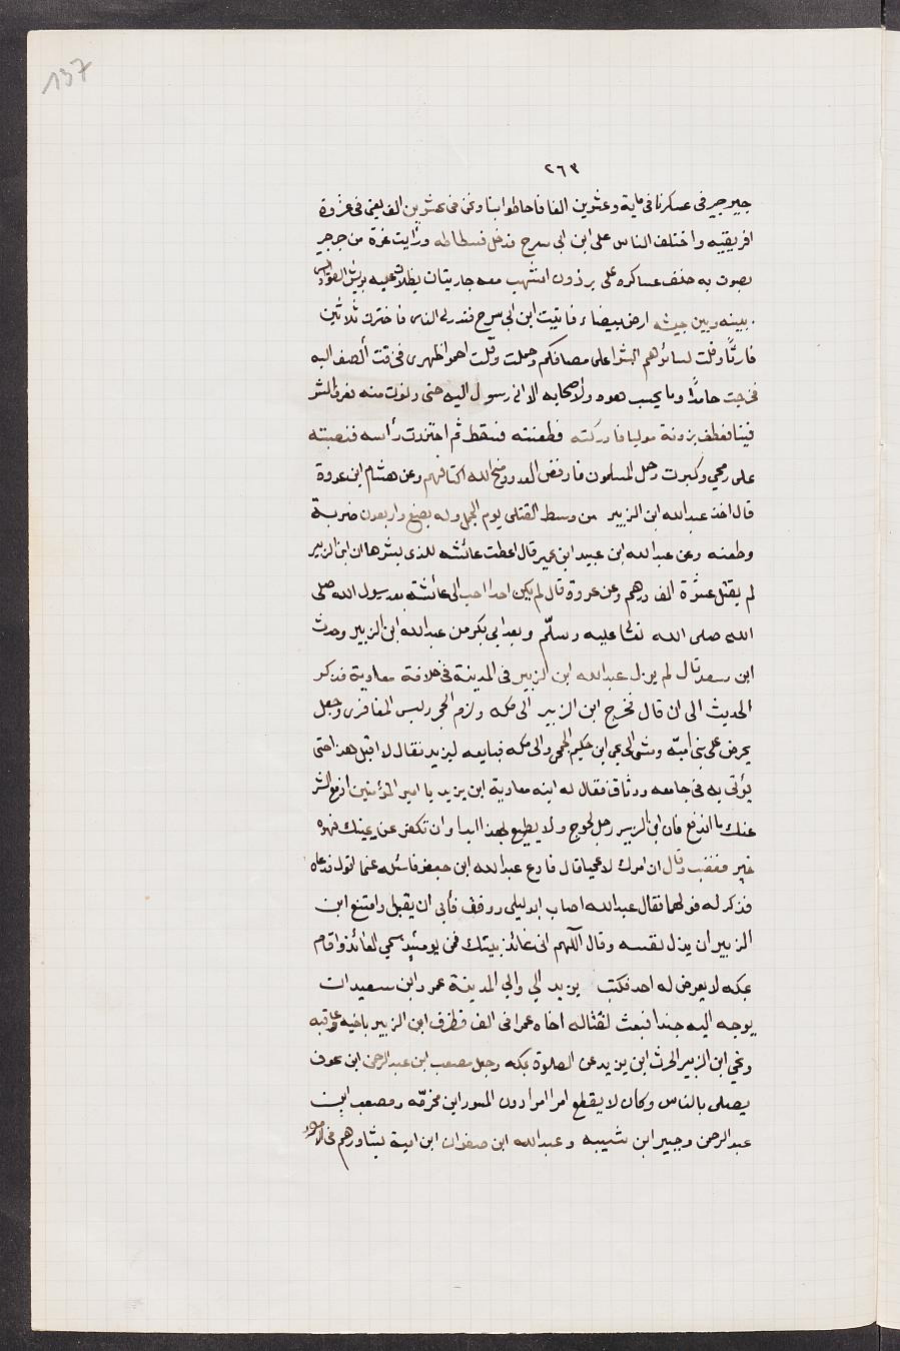 137
٢٦٣
جيرجير فى عسكرنا فى ماية وعشرين الفا فاحاطوا بنا ونحن فى عشرين الف يعنى فى غزوة
افريقيه واختلف الناس على ابن ابى سرح فدخل فسطاطه ورايت غرة من جرجر
بصرت به خلف عساكره على برذون اشهب معه جاريتان يظلان عليه بريش الطواويس
بينه وبين جيشه ارض بيضاء فاتيت ابن ابى سرح فندر لى الناس فاخترت ثلاثين
فارسًا وقلت لسائرهم البثوا على مصافكم وحملت وقلت احموا ظهرى فخرقت الصف اليه
فخرجت صامدًا وما يحسب هو ولا اصحابه الا انى رسول اليه حتى دنوت منه فعرف الشر
فثنى برذونه موليا فادركته فطعنته فسقط ثم احتززت رأسه فنصبته
على رمحى وكبرت وحمل المسلمون فارفض العدو ومنح الله اكتافهم وعن هشام ابن عروة
قال اخذ عبدالله ابن الزبير من وسط القتلى يوم الجمل وله بضع واربعون ضربة
وطعنه وعن عبد الله ابن عبيد ابن عمير قال اعطت عائشه للذى بشرها ان ابن الزبير
لم يقتل عشرة الف درهم وعن عروة قال لم يكن احد احب الى عائشة بعد رسول الله صلى
الله صلى الله تعالى عليه وسلّم وبعد ابى بكر من عبدالله ابن الزبير وحدث
ابن سعد قال لم يزل عبدالله ابن الزبير فى المدينة فى خلافة معاوية فذكر
الحديث الى ان قال فخرج ابن الزبير الى مكه ولزم الحجر ولبس المغافرى وجعل
يحرض على بنى اميّه ومشى الى يحيى ابن حكيم الجمحى والى مكه فبايعه ليزيد فقال لا اقبل هذا حتى
يؤتى به فى جامعه ووثاق فقال له ابنه معاوية ابن يزيد يا امير المؤمنين ادفع الشر
عنك ما اندفع فان ابن الزبير رجل لجوج ولا يطيع لهذا ابدا وان تكفر عن يمينك فهو
خير فغضب وقال ان فى امرك لاعجبا قال فادع عبدالله ابن جعفر فاسئله عما اقول فدعاه
فذكر له قولهما فقال عبدالله اصاب ابو ليلى ووفق فأبى ان يقبل وامتنع ابن
الزبير ان يذل نفسه وقال اللّهم انى عائذ ببيتك فمن يومئذٍ سمى العائذ واقام
بمكه لا يعرض له احد فكتب يزيد الى والى المدينة عمرو ابن سعيد ان
يوجه اليه جندا فبعث لقتاله اخاه عمرا فى الف فظفر ابن الزبير باخيه وعاقبه
ونحى ابن الزبير الحرث ابن يزيد عن الصلوة بمكه وجعل مصعب ابن عبد الرحمن ابن عوف
يصلى بالناس وكان لا يقطع امرا دون المسور ابن مخرمّه ومصعب ابن
عبد الرحمن وجبير ابن شيبه وعبدالله ابن صفوان ابن امية يشاورهم فى الامور